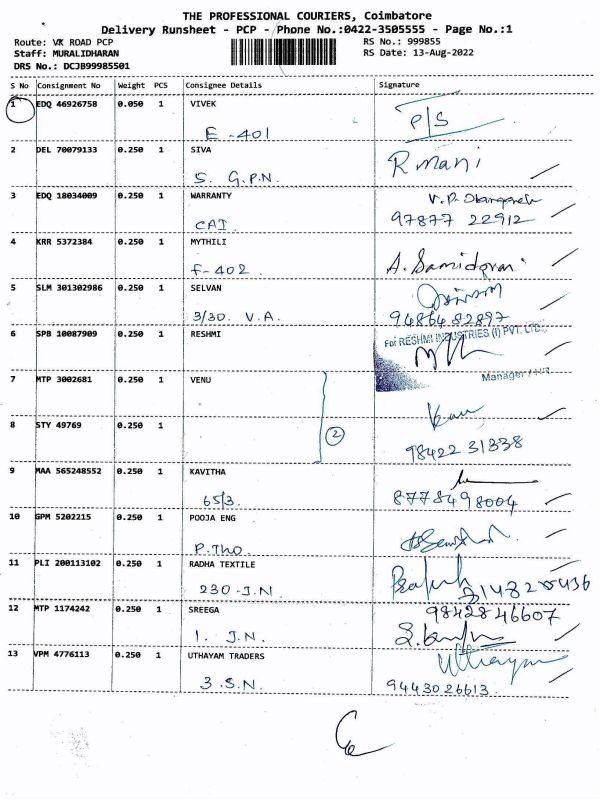 THE PROFESSIONAL COURIERS, Coimbatore
Delivery Runsheet - PCP - Phone No.:0422-3505555 - Page No.:1
Route: VK ROAD PCP RS No.: 999855
Staff: MURALIDHARAN RS Date: 13-Aug-2022
DRS No.: DCJB99985501
S No Consignment No Weight PCS Consignee Details Signature
1 EDQ 46926758 0.050 1 VIVEK
E-401 P/S
2 DEL 70079133 0.250 1 SIVA R mani
S. G.P.N.
3 EDQ 18034009 0.250 1 WARRANTY V.P.
CAI 97877 22912
4 KRR 5372384 0.250 1 MYTHILI
F-402
5 SLM 301302986 0.250 1 SELVAN
3/30. V.A. 94864 82897
6 SPB 10087909 0.250 1 RESHMI For RESHMI INDUSTRIES (I) PVT. LTD.,
Manager / HR
7 MTP 3002681 0.250 1 VENU
2
8 STY 49769 0.250 1 98422 31338
9 MAA 565248552 0.250 1 KAVITHA
65/3. 8778498004
10 GPM 5202215 0.250 1 POOJA ENG
P.Tho
11 PLI 200113102 0.250 1 RADHA TEXTILE
230-J.N
12 MTP 1174242 0.250 1 SREEGA 98428 46607
1. J.N.
13 VPM 4776113 0.250 1 UTHAYAM TRADERS Uthayam
3.S.N. 9443026613